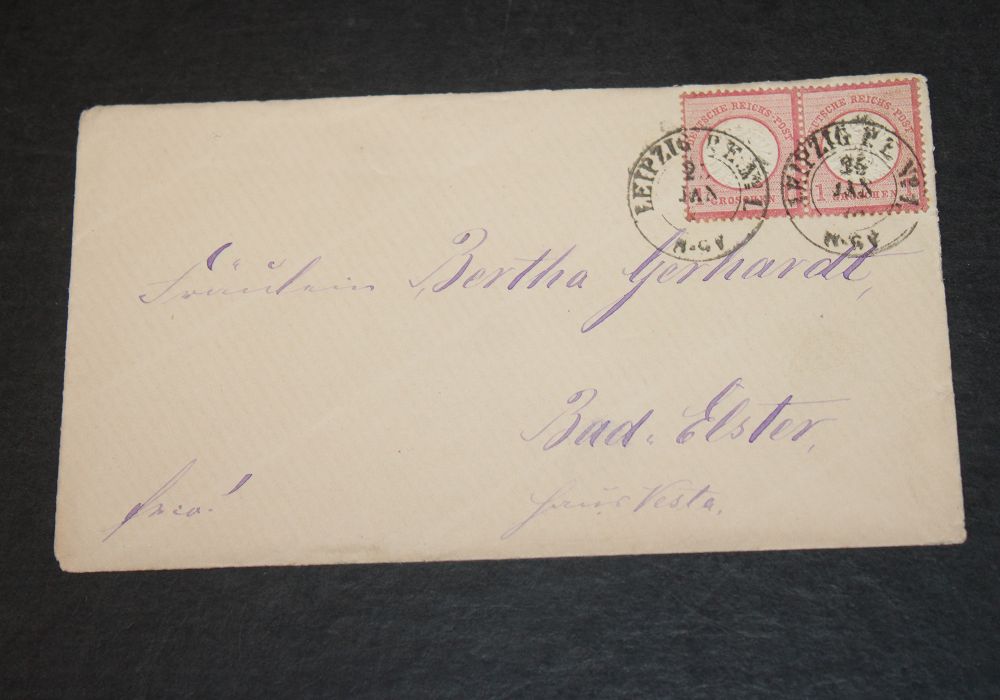 DEUTSCHE REICHS-POST
1 GROSCHEN 1
DEUTSCHE REICHS-POST
1 GROSCHEN
LEIPZIG P.E. No 1.
JAN
N-5A
LEIPZIG P.E. No 1.
25
JAN
N-5A
Fräulein Bertha Gerhardt,
Bad-Elster,
Haus Vesta.
frco!